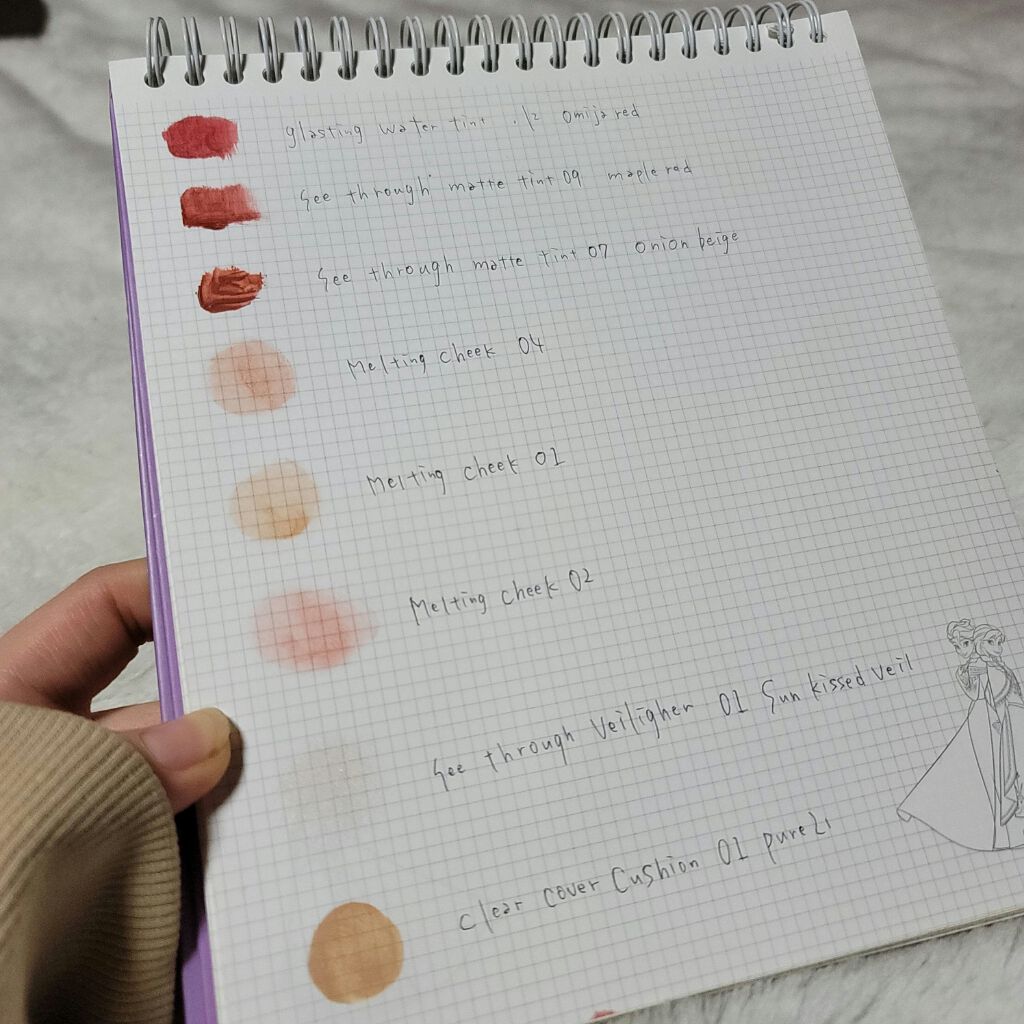 glasting water tint .12 omija red
See through matte tint 09 maple red
See through matte tint 07 onion beige
Melting cheek 04
Melting cheek 01
Melting cheek 02
See through Veiligher 01 Sun kissed veil
Clear cover Cushion 01 pure21